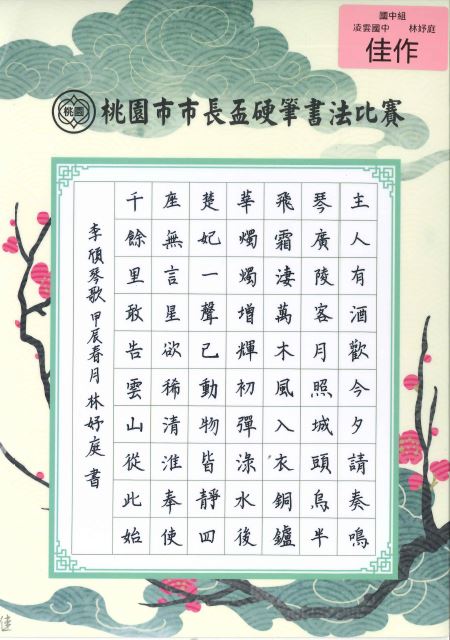 國中組
凌雲國中 林妤庭
佳作
桃園
桃園市市長盃硬筆書法比賽
主人有酒歡今夕請奏鳴
琴廣陵客月照城頭烏半
飛霜淒萬木風入衣銅鑪
華燭燭增輝初彈淥水後
楚妃一聲已動物皆靜四
座無言星欲稀清淮奉使
千餘里敢告雲山從此始
李頎琴歌 甲辰春月 林妤庭 書
佳